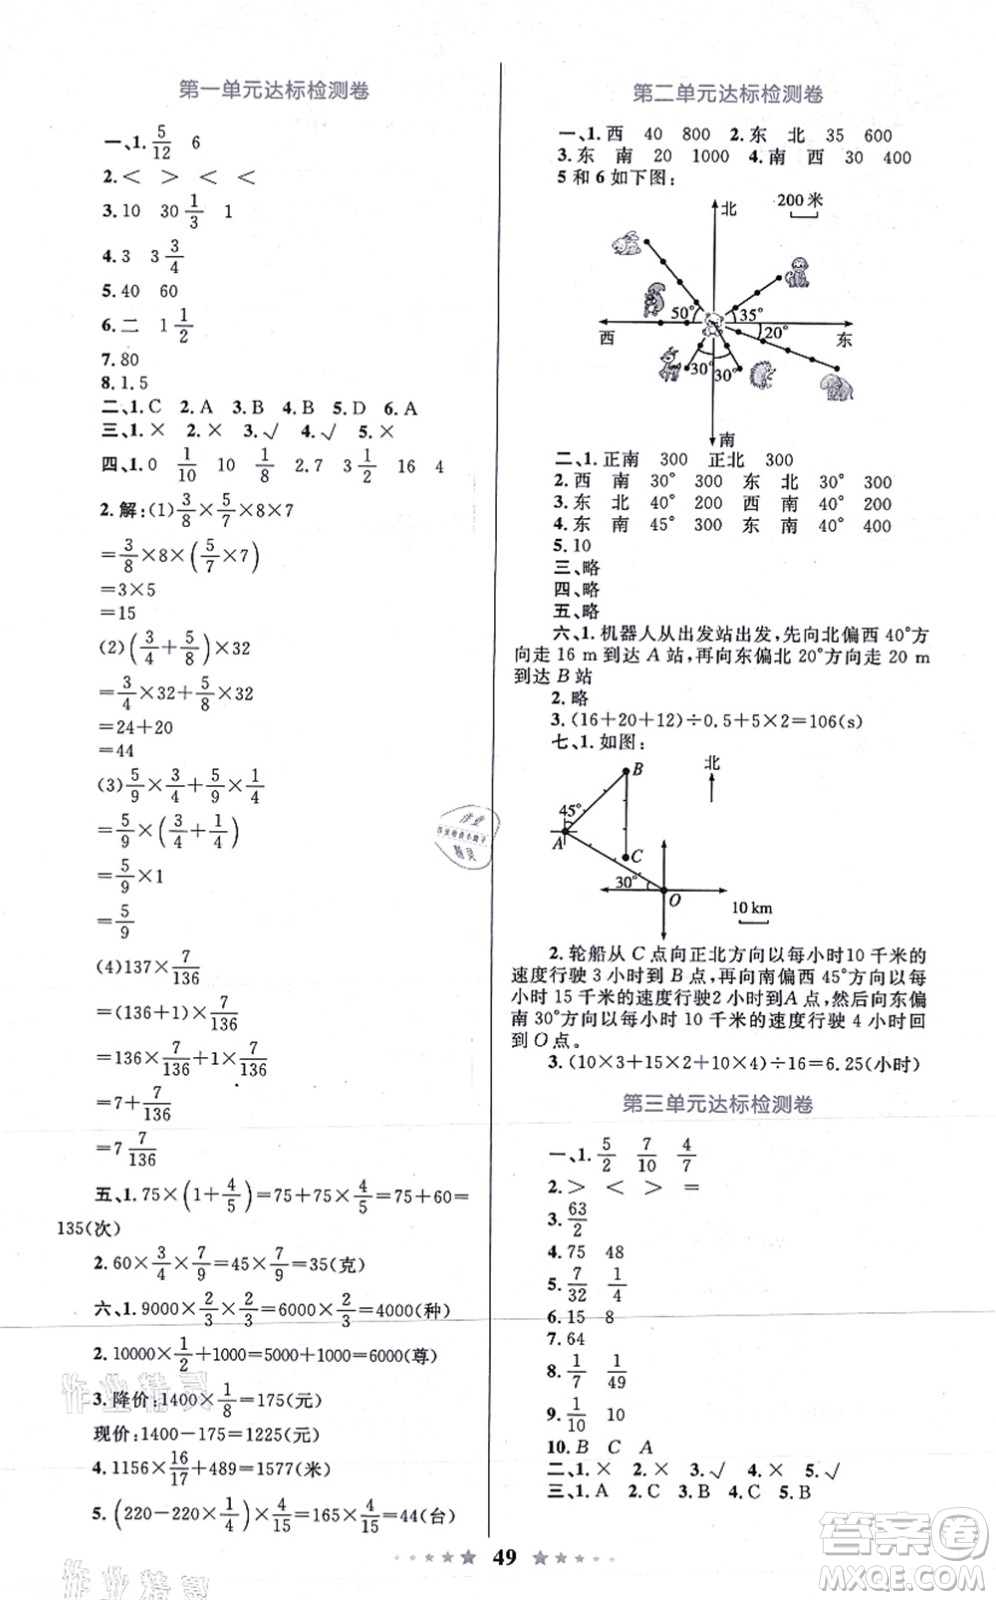 第一单元达标检测卷
一、1. 5/12 6
2. < > < <
3. 10 30 1/3 1
4. 3 3 3/4
5. 40 60
6. 二 1 1/2
7. 80
8. 1.5
二、1. C 2. A 3. B 4. B 5. D 6. A
三、1. × 2. × 3. √ 4. √ 5. ×
四、1. 0 1/10 10 1/8 2.7 3 1/2 16 4
2. 解:(1) 3/8 × 5/7 × 8 × 7
= 3/8 × 8 × (5/7 × 7)
= 3 × 5
= 15
(2) (3/4 + 5/8) × 32
= 3/4 × 32 + 5/8 × 32
= 24 + 20
= 44
(3) 5/9 × 3/4 + 5/9 × 1/4
= 5/9 × (3/4 + 1/4)
= 5/9 × 1
= 5/9
(4) 137 × 7/136
= (136 + 1) × 7/136
= 136 × 7/136 + 1 × 7/136
= 7 + 7/136
= 7 7/136
五、1. 75 × (1 + 4/5) = 75 + 75 × 4/5 = 75 + 60 =
135(次)
2. 60 × 3/4 × 7/9 = 45 × 7/9 = 35(克)
六、1. 9000 × 2/3 × 2/3 = 6000 × 2/3 = 4000(种)
2. 10000 × 1/2 + 1000 = 5000 + 1000 = 6000(尊)
3. 降价:1400 × 1/8 = 175(元)
现价:1400 − 175 = 1225(元)
4. 1156 × 16/17 + 489 = 1577(米)
5. (220 − 220 × 1/4) × 4/15 = 165 × 4/15 = 44(台)
第二单元达标检测卷
一、1. 西 40 800 2. 东 北 35 600
3. 东 南 20 1000 4. 南 西 30 400
5 和 6 如下图:
北
200 米
50°
35°
西
20°
东
30° 30°
南
二、1. 正南 300 正北 300
2. 西 南 30° 300 东 北 30° 300
3. 东 北 40° 200 西 南 40° 200
4. 东 南 45° 300 东 南 40° 400
5. 10
三、略
四、略
五、略
六、1. 机器人从出发站出发,先向北偏西 40°方
向走 16 m 到达 A 站,再向东偏北 20°方向走 20 m
到达 B 站
2. 略
3. (16+20+12)÷0.5+5×2=106(s)
七、1. 如图:
北
B
45°
A
C
30°
O
10 km
2. 轮船从 C 点向正北方向以每小时10 千米的
速度行驶 3 小时到 B 点,再向南偏西 45°方向以每
小时 15 千米的速度行驶2 小时到A 点,然后向东偏
南 30°方向以每小时 10 千米的速度行驶 4 小时回
到 O 点。
3. (10×3+15×2+10×4)÷16=6.25(小时)
第三单元达标检测卷
一、1. 5/2 7/10 4/7
2. > < > =
3. 63/2
4. 75 48
5. 7/32 1/4
6. 15 8
7. 64
8. 1/7 1/49
9. 1/10 10
10. B C A
二、1. × 2. × 3. √ 4. √ 5. ×
三、1. A 2. B 3. B 4. C 5. B
49
作业精灵
答案圈
MXQE.COM